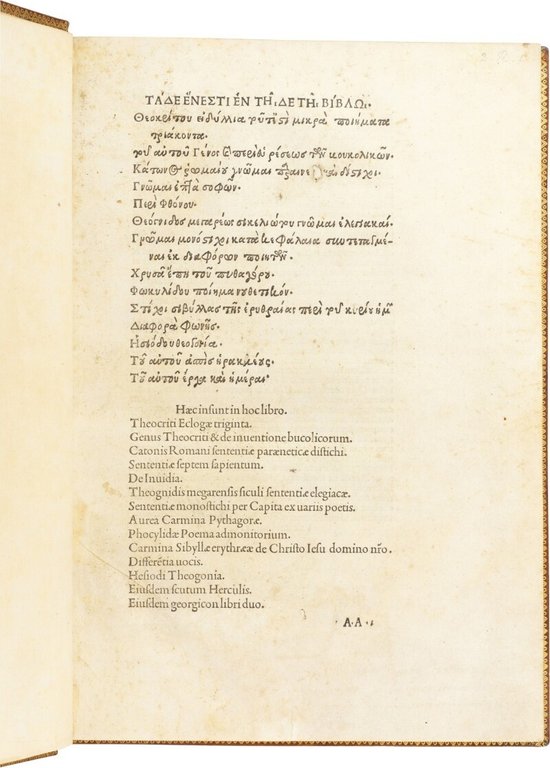 ΤΑ΄ΔΕ ἜΝΕΣΤΙ ἘΝ ΤΗ͂ι ΔΕ ΤΗ͂ι ΒΊΒΛΩι.
Θεοκρίτου εἰδύλλια τουτέστι μικρὰ ποιήματα
τριάκοντα.
τοῦ αὐτοῦ Γένος & περὶ εὑρέσεως τῶν βουκολικῶν.
Κάτωνος ῥωμαίου γνῶμαι
Γνῶμαι ἑπτὰ σοφῶν.
Περὶ Φθόνου.
Θεόγνιδος μεγαρέως σικελιώτου γνῶμαι ἐλεγιακαί.
Γνῶμαι μονόστιχοι κατὰ κεφάλαια συντεταγμέ
ναι ἐκ διαφόρων ποιητῶν.
Χρυσᾶ ἔπη τοῦ πυθαγόρου.
Φωκυλίδου ποίημα νουθετικόν.
Στίχοι σιβύλλας τῆς ἐρυθραίας περὶ τοῦ κυρίου ἡμῶν
Διαφορὰ Φωνῆς.
Ἡσιόδου θεογονία.
Τοῦ αὐτοῦ ἀσπὶς ἡρακλέους.
Τοῦ αὐτοῦ ἔργα καὶ ἡμέραι.
Hæc insunt in hoc libro.
Theocriti Eclogæ triginta.
Genus Theocriti & de inuentione bucolicorum.
Catonis Romani sententiæ paræneticæ distichi.
Sententiæ septem sapientum.
De Inuidia.
Theognidis megarensis siculi sententiæ elegiacæ.
Sententiæ monostichi per Capita ex uariis poetis.
Aurea Carmina Pythagoræ.
Phocylidæ Poema admonitorium.
Carmina Sibyllæ erythrææ de Christo Iesu domino nr̃o.
Differẽtia uocis.
Hesiodi Theogonia.
Eiusdem scutum Herculis.
Eiusdem georgicon libri duo.
A·A·i